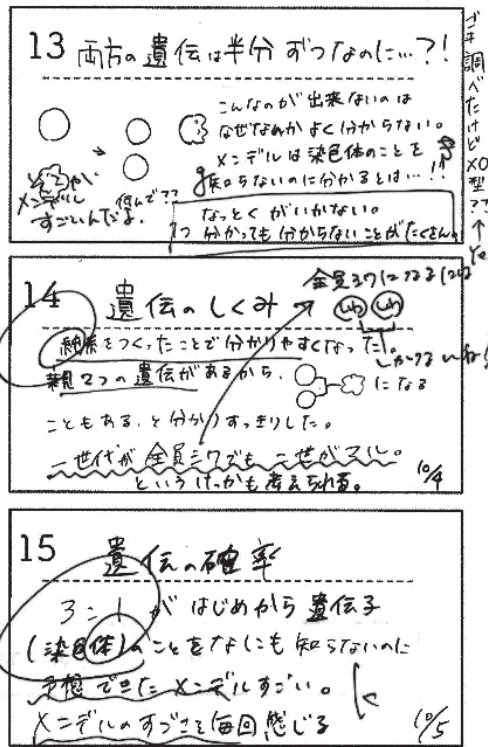 13 両方の遺伝は半分ずつなのに…?!
こんなのが出来ないのは
なぜなのかよく分からない。
メンデルは染色体のことを
知らないのに分かるとは…!!
メンデル
すごいんだよ.
何んで??
なっとくがいかない。
1つ分かっても分からないことがたくさん。
調べたけどXO型??
14 遺伝のしくみ
全員シワになるには
しわ しわ
をつくったことで分かりやすくなった。
しかけるいね
親2つの遺伝があるから、
になる
こともある、と分かりすっきりした。
二世代が全員シワでも、二世がマル。
というけっかも考えられる。
10/4
15 遺伝の確率
3:1がはじめから遺伝子
(染色体)のことをなしにも知らないのに
予想できたメンデルすごい。
メンデルのすごさを毎回感じる
10/5